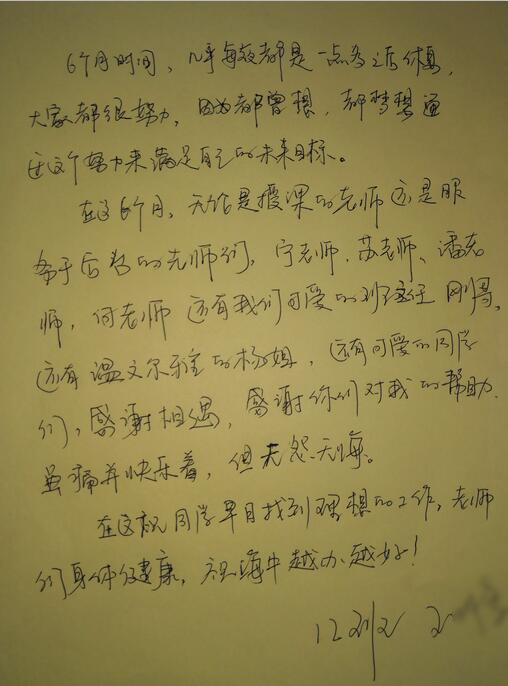 6个月时间，几乎每夜都是一点多之后休息，
大家都很努力，因为都曾想，都梦想通
过这个努力来满足自己的未来目标。
在这6个月，无论是授课的老师还是服
务于后教的老师们，宁老师、苏老师、潘老
师，何老师 还有我们可爱的班主任 刚哥，
还有温文尔雅的杨姐，还有可爱的同学
们，感谢相遇，感谢你们对我的帮助，
虽痛并快乐着，但无怨无悔。
在这祝同学早日找到理想的工作，老师
们身体健康，祝海牛越办越好！